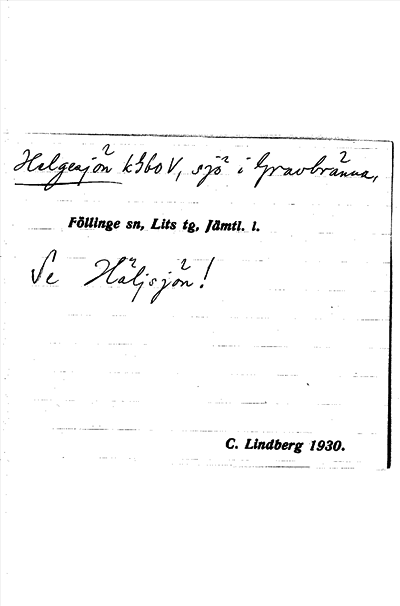 Helgesjön k960 V, sjö i Gravbränna,
Föllinge sn, Lits tg, Jämtl. l.
Se Häljsjön!
C. Lindberg 1930.